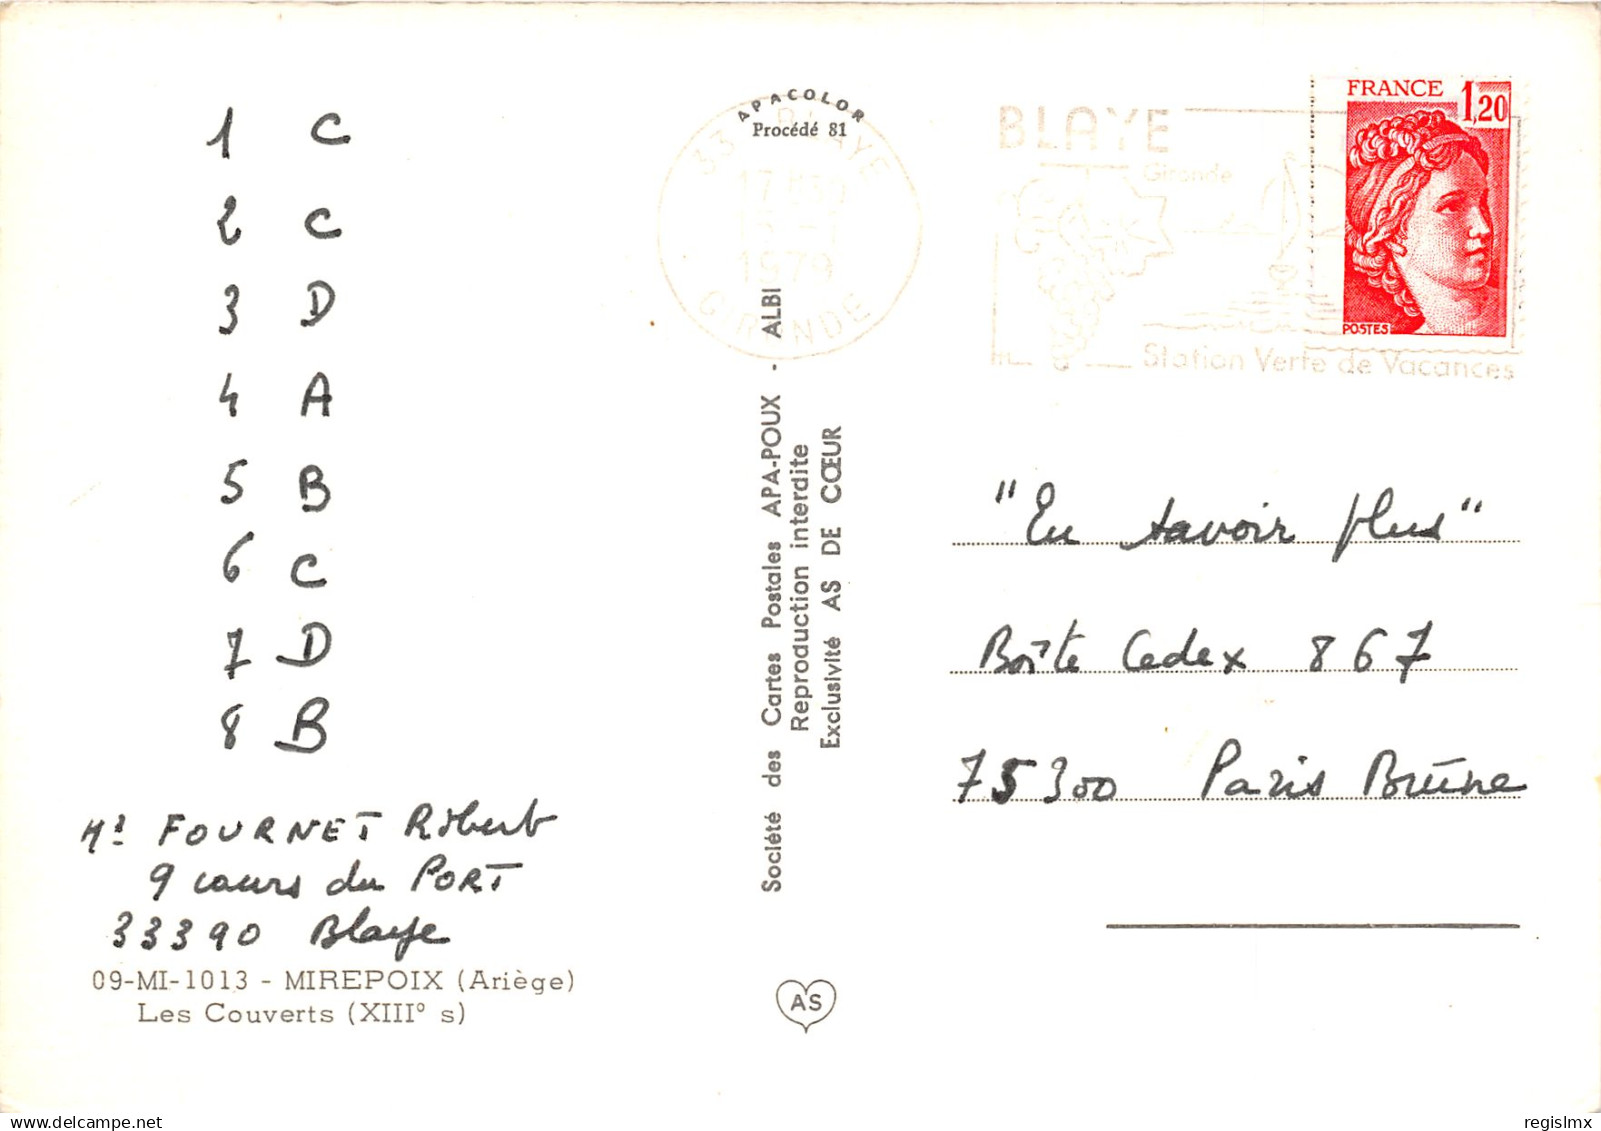 1 C
2 C
3 D
4 A
5 B
6 C
7 D
8 B
Mr FOURNET Robert
9 cours du PORT
33390 Blaye
09-MI-1013 - MIREPOIX (Ariège)
Les Couverts (XIIIº s)
APACOLOR
Procédé 81
Société des Cartes Postales APA-POUX - ALBI
Reproduction interdite
Exclusivité AS DE CŒUR
AS
33 BLAYE
1979
GIRONDE
BLAYE
Gironde
Station Verte de Vacances
FRANCE 1,20
POSTES
"En savoir plus"
Boîte Cedex 867
75300 Paris Brune
delcampe.net
regislmx